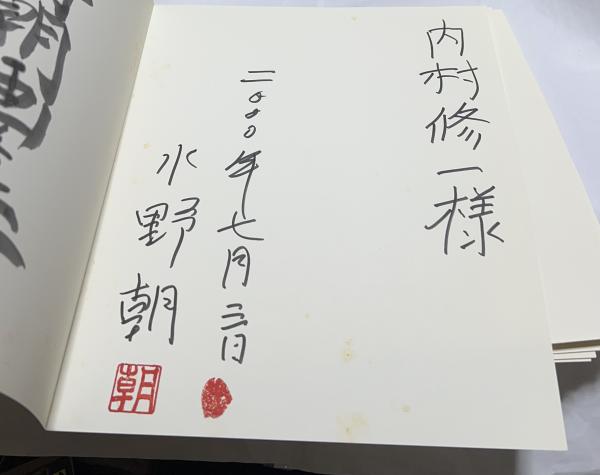 内村修一様
二〇〇〇年七月三日
水野朝
朝